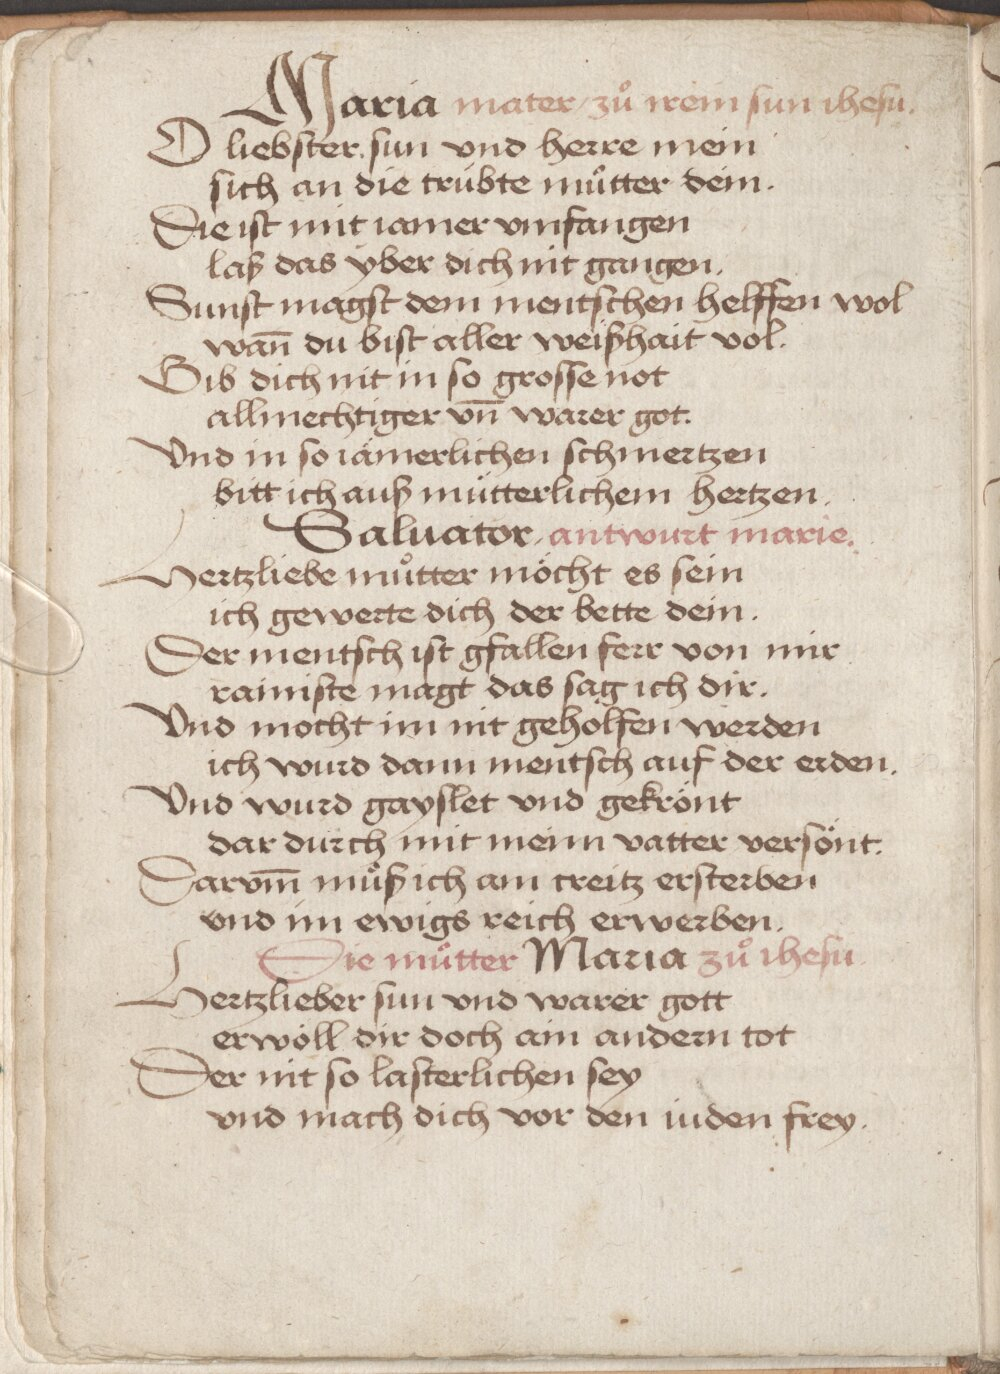 Maria mater zů irem sun ihesu.
O liebster sun vnd herre mein
sich an die trübte můtter dein.
Die ist mit iamer vmfangen
laß das yber dich nit gangen.
Sunst magst dem mentschen helffen wol
wañ du bist aller weißhait vol.
Gib dich nit in so grosse not
allmechtiger vn̄ warer got.
Vnd in so iämerlichen schmertzen
bitt ich auß mütterlichem hertzen.
Saluator antwurt marie.
Hertzliebe můtter möcht es sein
ich gewerte dich der bette dein.
Der mentsch ist gfallen ferr von mir
rainiste magt das sag ich dir.
Vnd mocht im nit geholfen werden
ich wurd dann mentsch auf der erden.
Vnd wurd gayslet vnd gekrönt
dar durch mit meim vatter versönt.
Darvm̄ můß ich am creitz ersterben
vnd im ewigs reich erwerben.
Die můtter Maria zů ihesu
Hertzlieber sun vnd warer gott
erwöll dir doch ain andern tot
Der nit so lasterlichen sey
vnd mach dich vor den iuden frey.